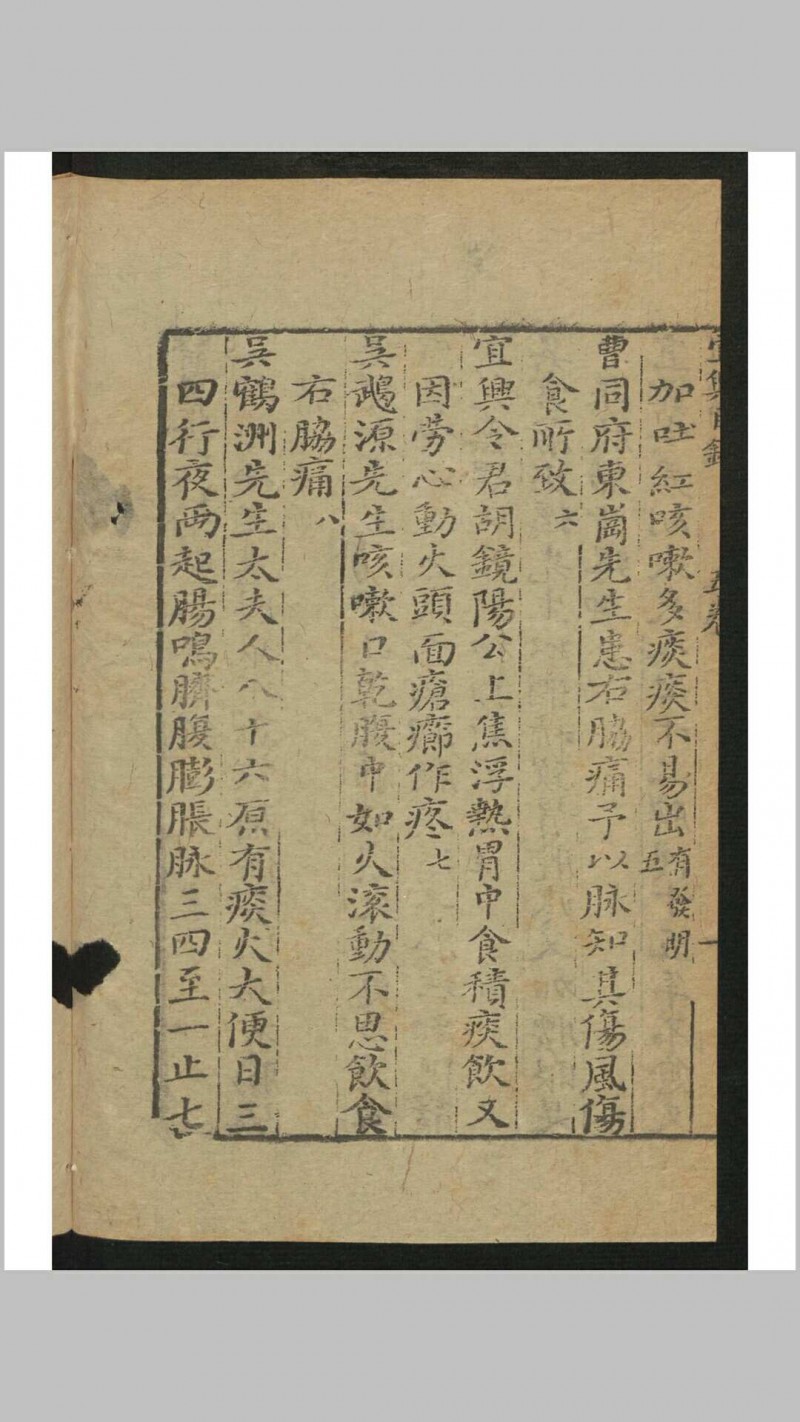 加吐紅咳嗽多痰痰不易出有發明五
曹同府東崗先生患右脇痛予以脉知其傷風傷
食所致六
宜興令君胡鏡陽公上焦浮熱胃中食積痰飲又
因勞心動火頭面瘡癤作疼七
吳鵝源先生咳嗽口乾腹中如火滚動不思飲食
右脇痛八
吳鶴洲先生太夫人八十六原有痰火大便日三
四行夜兩起腸鳴臍腹膨脹脉三四至一止七